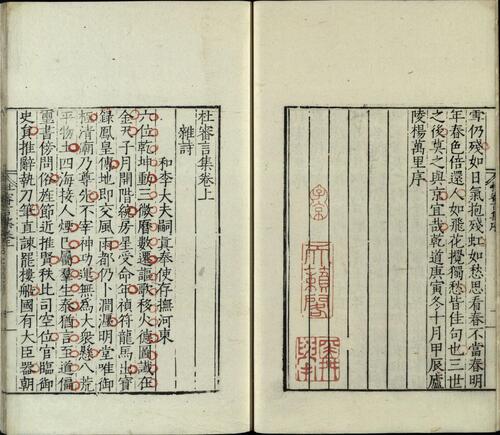 雪仍殘如日氣抱殘虹如愁思看春不當春明
年春色倍還人如飛花攪獨愁皆佳句也三世
之後莫之與京宜哉乾道庚寅冬十月甲辰廬
陵楊萬里序
天籟閣
杜審言集卷上
雜詩
和李大夫嗣真奉使存撫河東
六位乾坤動三微曆數遷謳歌移火德圖讖在
金天子月開階統房星受命年禎符龍馬出寶
籙鳳皇傳地即交風雨都仍卜澗瀍明堂唯御
極清廟乃尊先不宰神功運無為大象懸八荒
平物土四海接人煙已屬羣生泰猶言至道偏
璽書傍問俗旌節近推賢秩比司空位官臨御
史員雄辭執刀筆直諫罷樓船國有大臣器朝